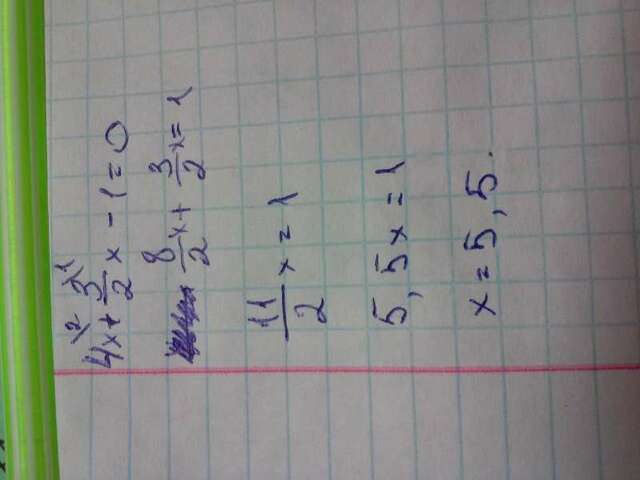 4x\2 + 3/2\1 x - 1 = 0
8/2 x + 3/2 x = 1
11/2 x = 1
5,5x = 1
x = 5,5.